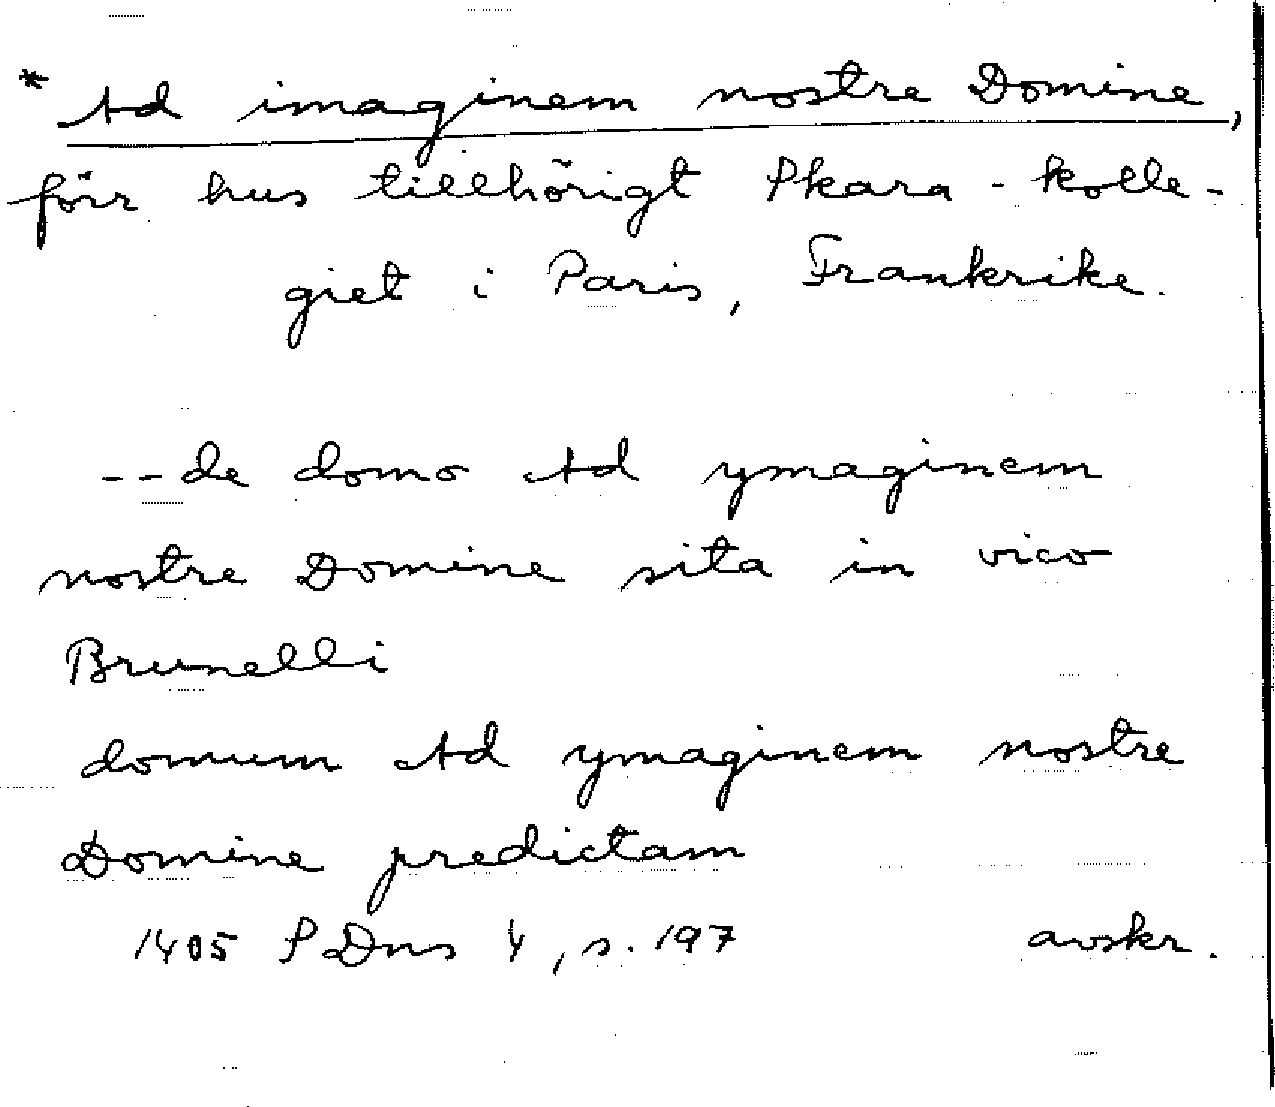 * Ad imaginem nostre Domine,
förr hus tillhörigt Skara-kolle-
giet i Paris, Frankrike.
-- de domo Ad ymaginem
nostre Domine sita in vico
Brunelli
domum Ad ymaginem nostre
Domine predictam
1405 SDns 4, s. 197 avskr.